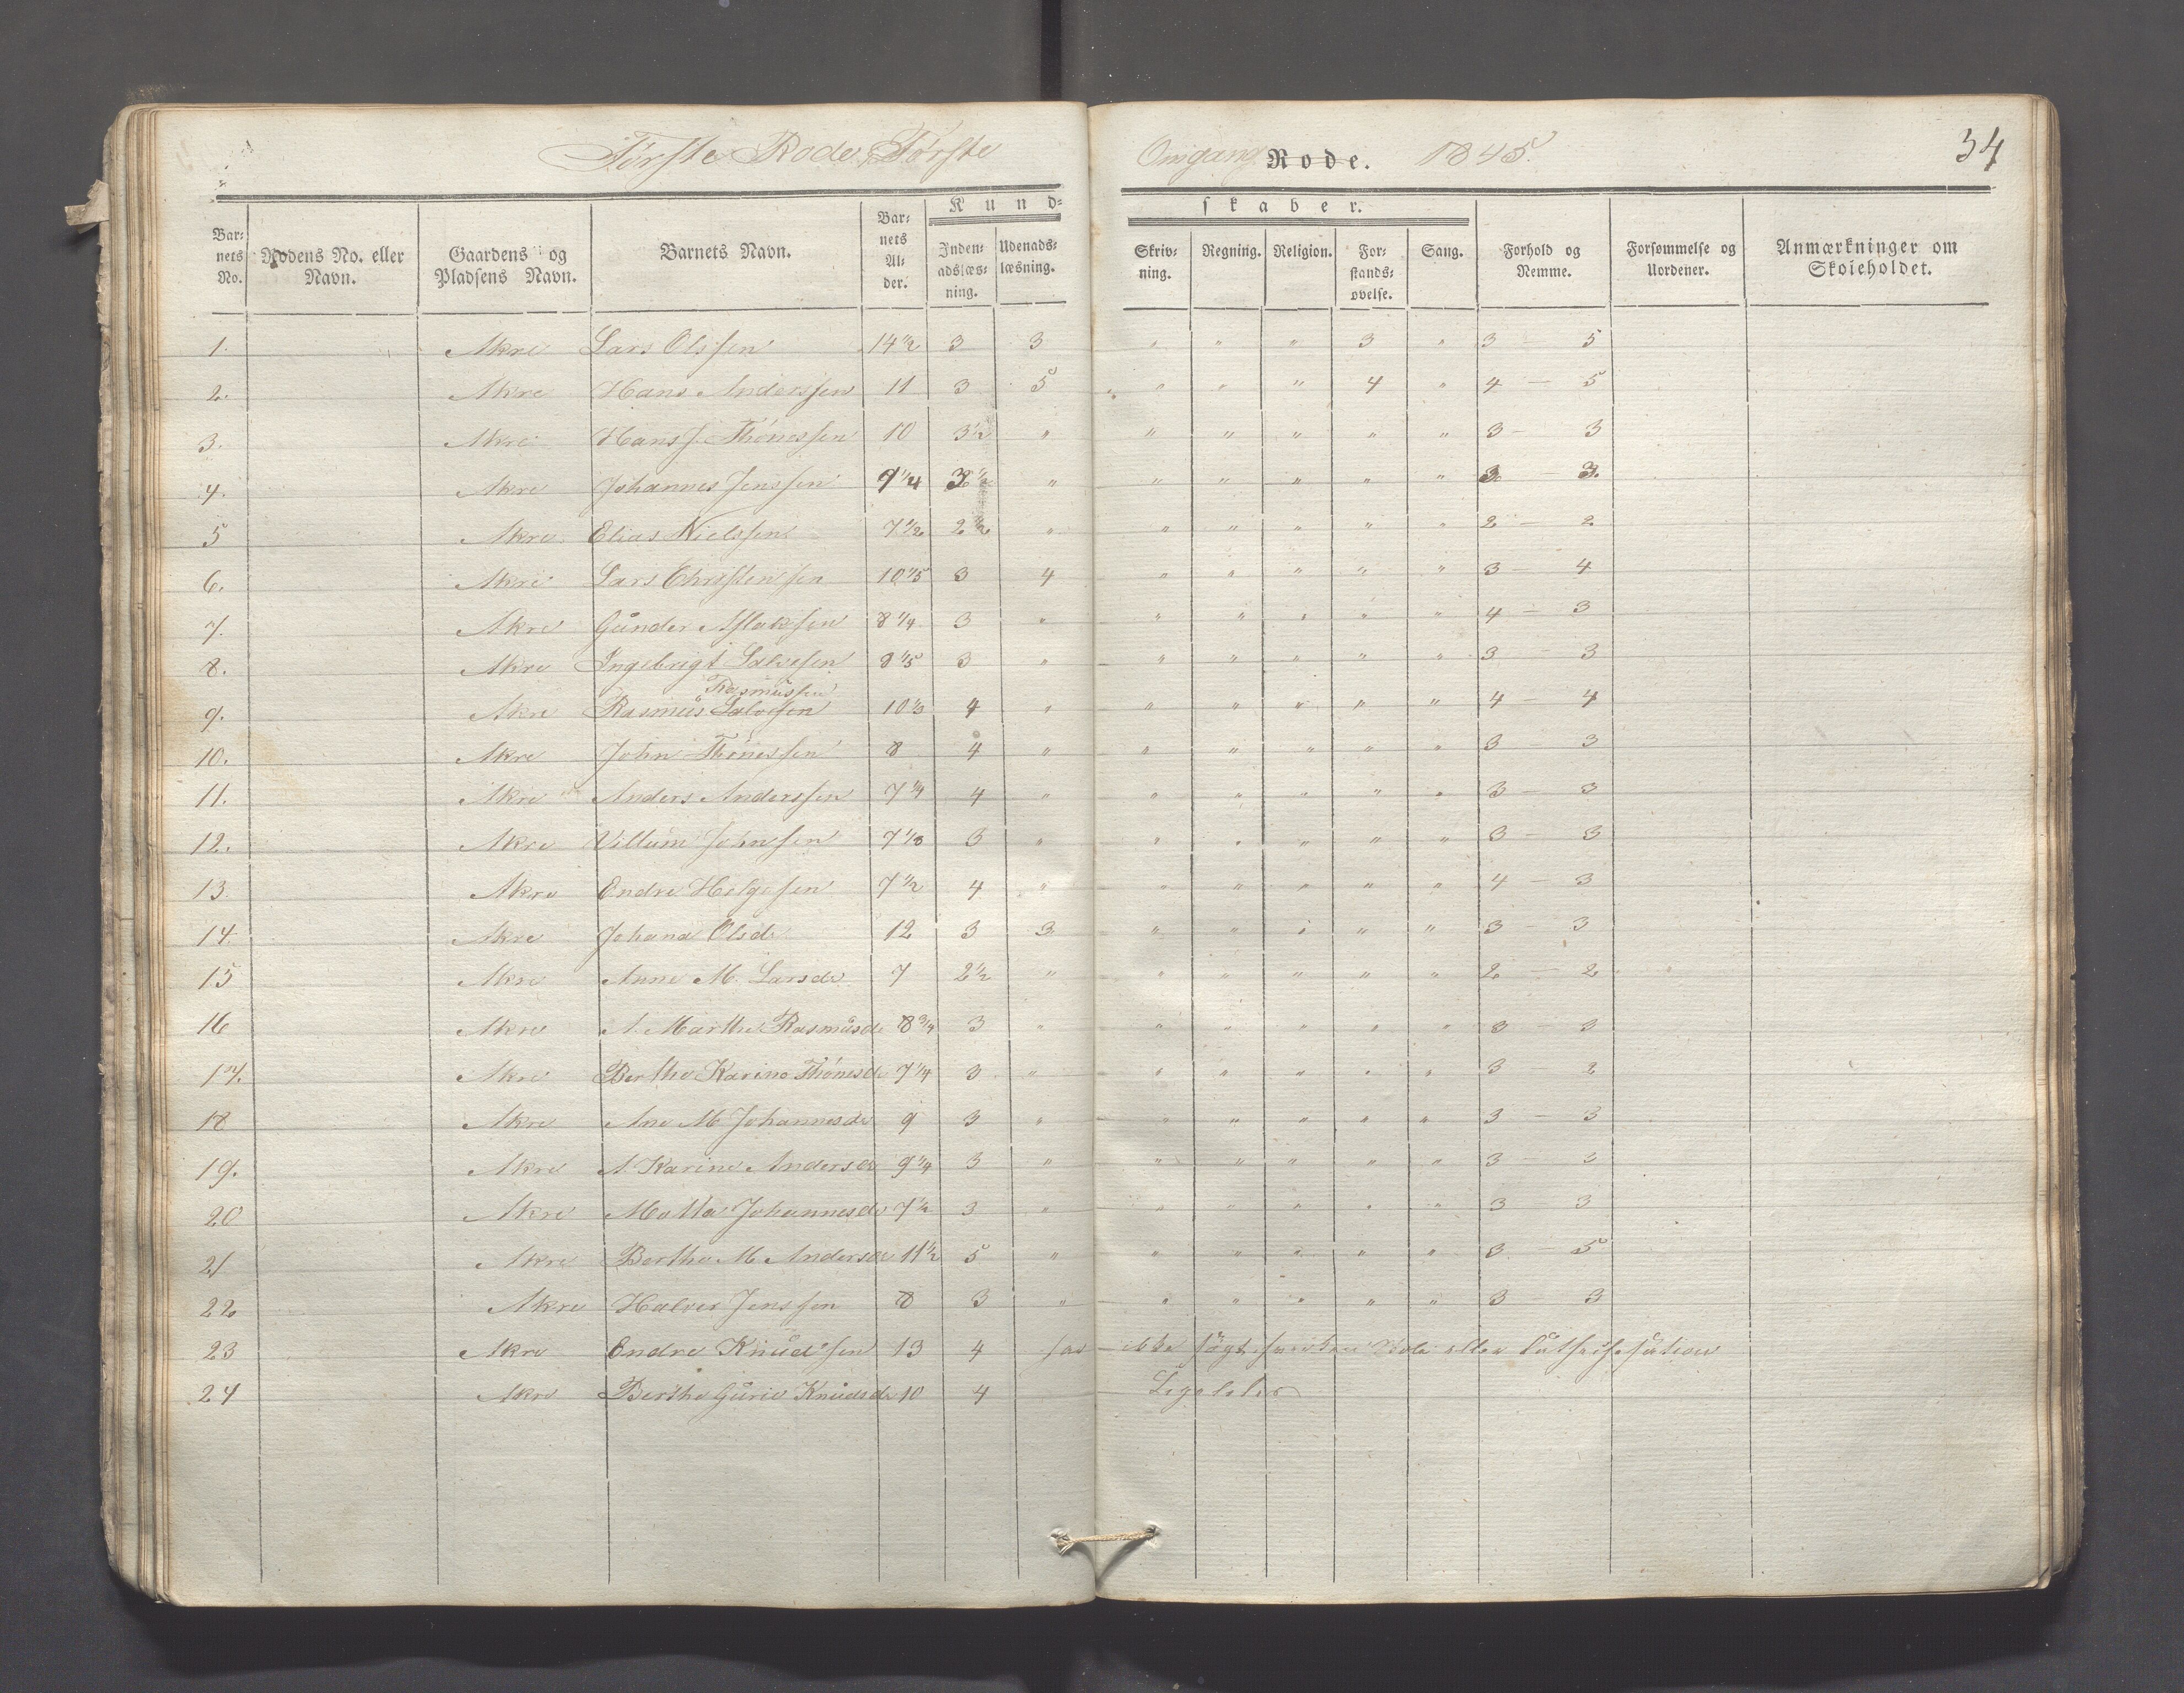 Første Rode, Første Omgang Rode. 1845. 34
Kund= skaber.
Bar= nets No. Rodens No. eller Navn. Gaardens og Pladsens Navn. Barnets Navn. Bar= nets Al= der. Inden= adslæs= ning. Udenads= læsning. Skriv= ning. Regning. Religion. For= stands= øvelse. Sang. Forhold og Nemme. Forsømmelse og Uordener. Anmærkninger om Skoleholdet.
1. Akre Lars Olssen 14 1/2 3 3 " " " 3 " 3 5
2. Akre Hans Anderssen 11 3 5 " " " 4 " 4 — 5
3. Akre Hans J. Thönessen 10 3 1/2 " " " " " " 3 — 3
4. Akre Johannes Jenssen 9 1/4 3 1/2 " " " " " " 3 — 3.
5 Akre Elias Nielssen 7 1/2 2 1/2 " " " " " " 2 — 2
6. Akre Lars Christenssen 10 1/5 3 4 " " " " " 3 — 4
7. Akre Gunder Aslakssen 8 1/4 3 " " " " " " 4 — 3
8. Akre Ingebrigt Salvesen 8 1/5 3 " " " " " " 3 — 3
Rasmussen
9. Akre Rasmus Salvesen 10 1/3 4 " " " " " " 4 — 4
10. Akre John Thönessen 8 4 " " " " " " 3 — 3
11. Akre Anders Anderssen 7 1/4 4 " " " " " " 3 — 3
12. Akre Villum Johnssen 7 1/3 3 " " " " " " 3 — 3
13. Akre Endre Helgesen 7 1/2 4 " " " " " " 4 — 3
14. Akre Johana Olsd. 12 3 3 " " " " " 3 — 3
15 Akre Anne M. Larsd. 7 2 1/2 " " " " " " 2 — 2
16 Akre A. Marthe Rasmusd. 8 3/4 3 " " " " " " 3 3
17. Akre Berthe Karine Thönesd. 7 1/4 3 " " " " " " 3 2
18 Akre Ane M Johannesd. 9 3 " " " " " " 3 — 3
19. Akre A. Karine Andersd. 9 1/4 3 " " " " " " 3 — 3
20 Akre Malla Johannesd. 7 1/2 3 " " " " " " 3 3
21 Akre Berthe M. Andersd. 11 1/2 5 " " " " " " 3 5
22 Akre Halvor Jenssen 8 3 " " " " " " 3 — 3
23 Akre Endre Knudssen 13 4 har ikke søgt hverken Skole eller Cathechisation
24 Akre Berthe Gurie Knudsd. 10 4 Ligeledes